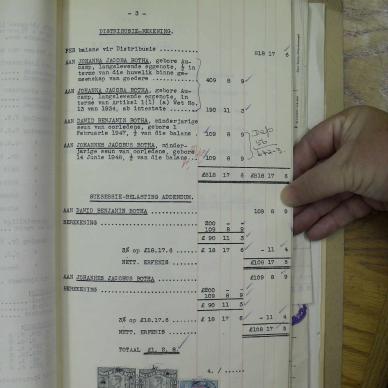 - 3 -
DISTRIBUSIE-REKENING.
PER balans vir Distribusie .......... 818 17 6
AAN JOHANNA JACOBA BOTHA, gebore Au-
camp, langslewende eggenote, ½ in
terme van die huwelik binne ge-
meenskap van goedere ... 409 8 9
AAN JOHANNA JACOBA BOTHA, gebore Au-
camp, langslewende eggenote, in
terme van artikel 1(1) (a) Wet No.
13 van 1934, ab intestato ..... 190 11 3
AAN DAVID BENJAMIN BOTHA, minderjarige
seun van oorledene, gebore 1
Februarie 1947, ½ van die balans. 109 8 9
AAN JOHANNES JACOBUS BOTHA, minder-
jarige seun van oorledene, gebore
14 Junie 1948, ½ van die balans.. 109 8 9
£818 17 6 £818 17 6
SUKSESSIE-BELASTING ADDENDUM.
AAN DAVID BENJAMIN BOTHA ............ 109 8 9
BEREKENING .......................... £200 - -
109 8 9
£ 90 11 3
3% op £18.17.6 ...... £ 18 17 6 - 11 4
NETT. ERFENIS ....... £108 17 5
AAN JOHANNES JACOBUS BOTHA .......... £109 8 9
BEREKENING .......................... £200 - -
109 8 9
£ 90 11 3
3% op £18.17.6 ...... £ 18 17 6 - 11 4
NETT. ERFENIS ....... £108 17 5
TOTAAL £1. 2. 8.
4. / .....